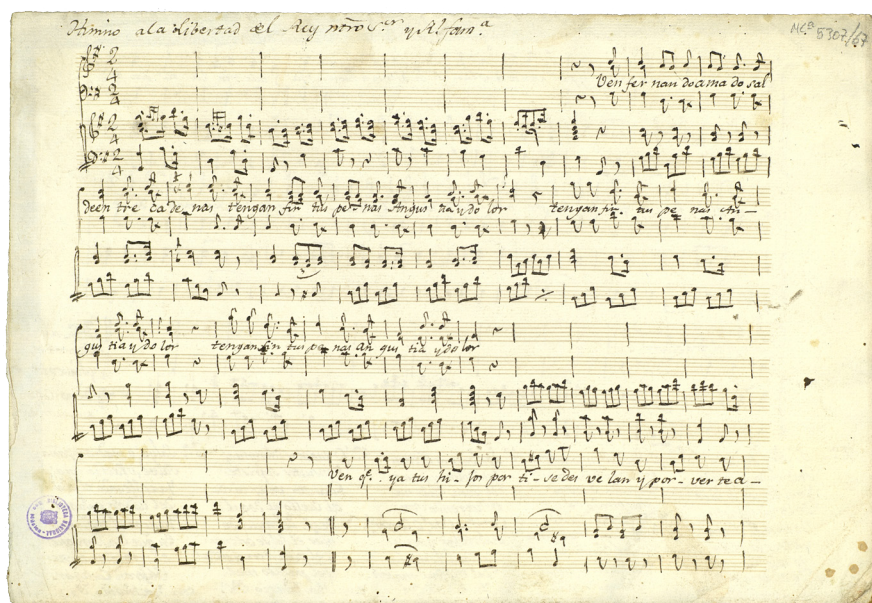 Himno a la libertad del Rey ntro Sor y Rl. fam.a
Mc.a 5307/67
2 4
2 4
Ven fer nan do ama do sal
2 4
2 4
de en tre ca de nas tengan fin tus pe nas Angus tia y do lor tengan fin tus pe nas an-
gus tia y do lor tengan fin tus pe nas an gus tia y do lor
Ven qe. ya tus hi-jos por ti-se des ve lan y por-ver te a-